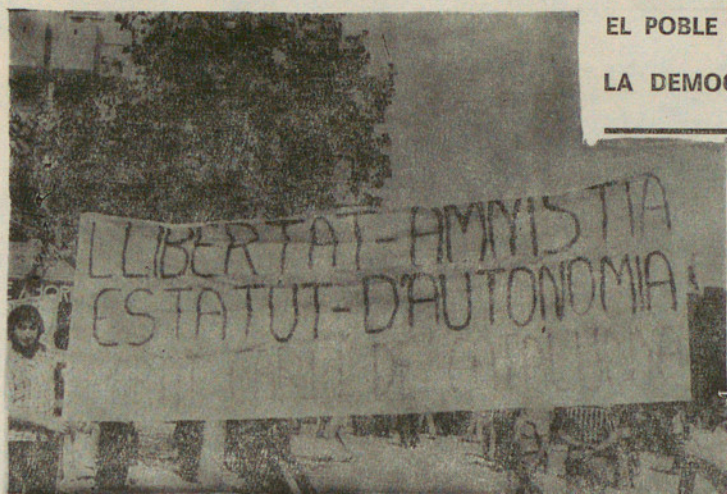 EL POBLE
LA DEMOC
LLIBERTAT-AMNISTIA
ESTATUT-D'AUTONOMIA